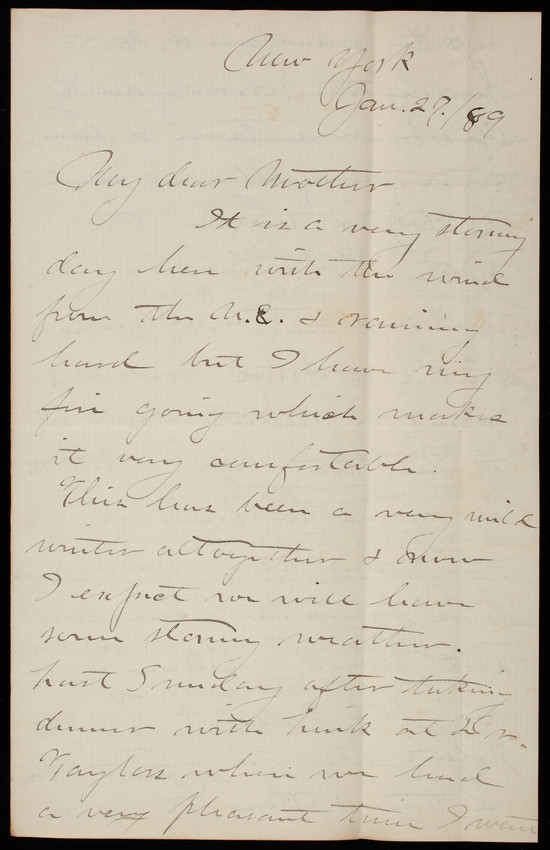 New York
Jan. 27./89
My dear Mother
It is a very stormy
day here with the wind
from the N.E. & raining
hard but I have my
fire going which makes
it very comfortable.
This has been a very mild
winter altogether & now
I expect we will have
some stormy weather.
Last Sunday after taking
dinner with at Dr.
Taylors where we had
a very pleasant time I went